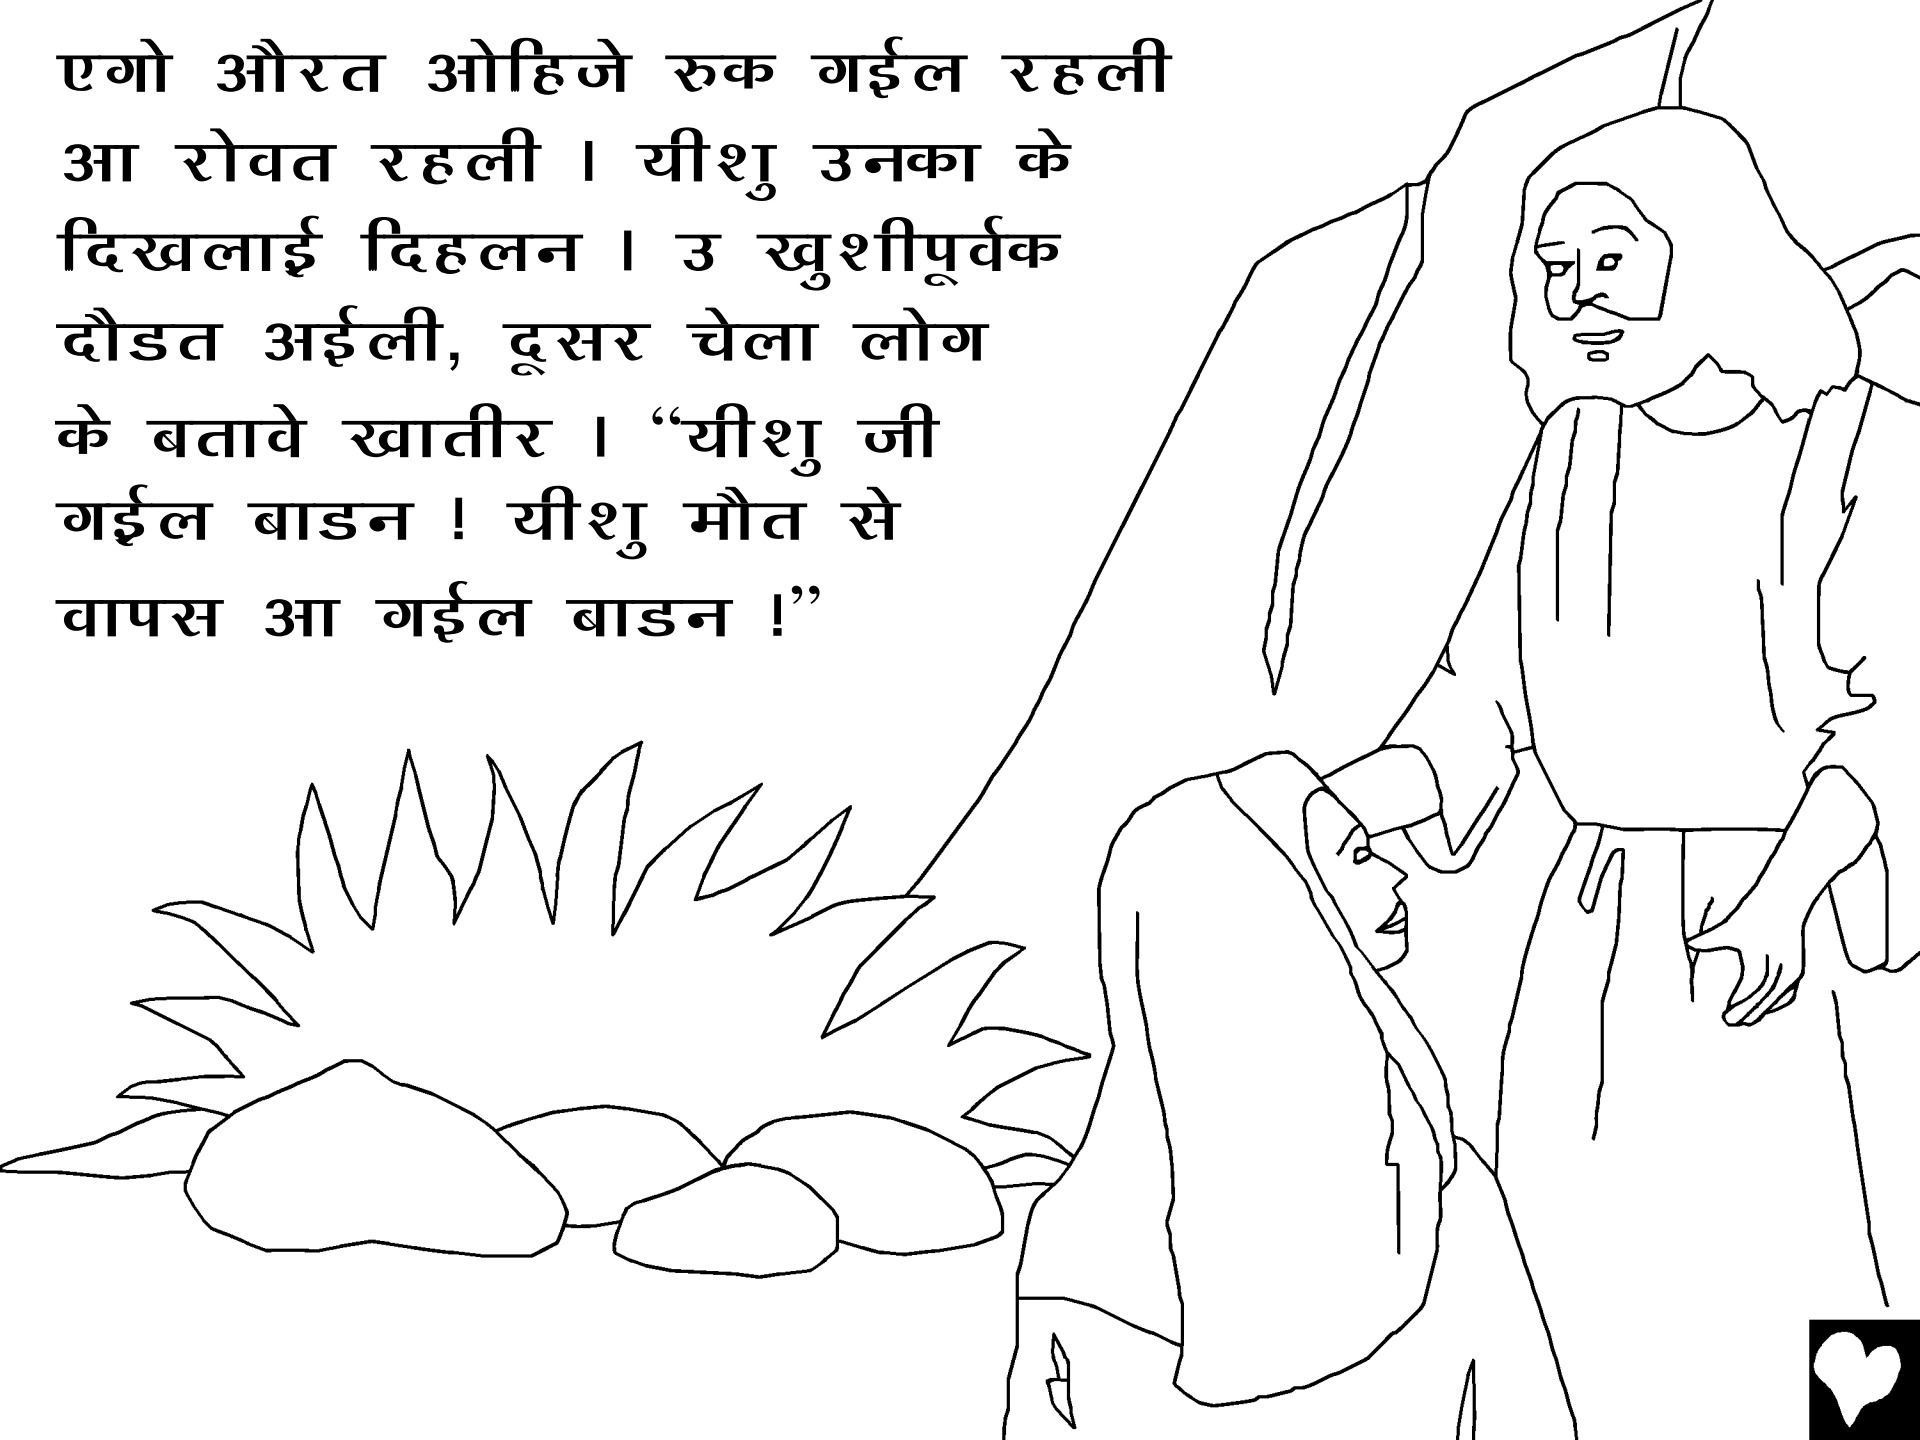 एगो औरत ओहिजे रुक गईल रहली
आ रोवत रहली । यीशु उनका के
दिखलाई दिहलन । उ खुशीपूर्वक
दौडत अईली, दूसर चेला लोग
के बतावे खातीर । “यीशु जी
गईल बाडन ! यीशु मौत से
वापस आ गईल बाडन !”